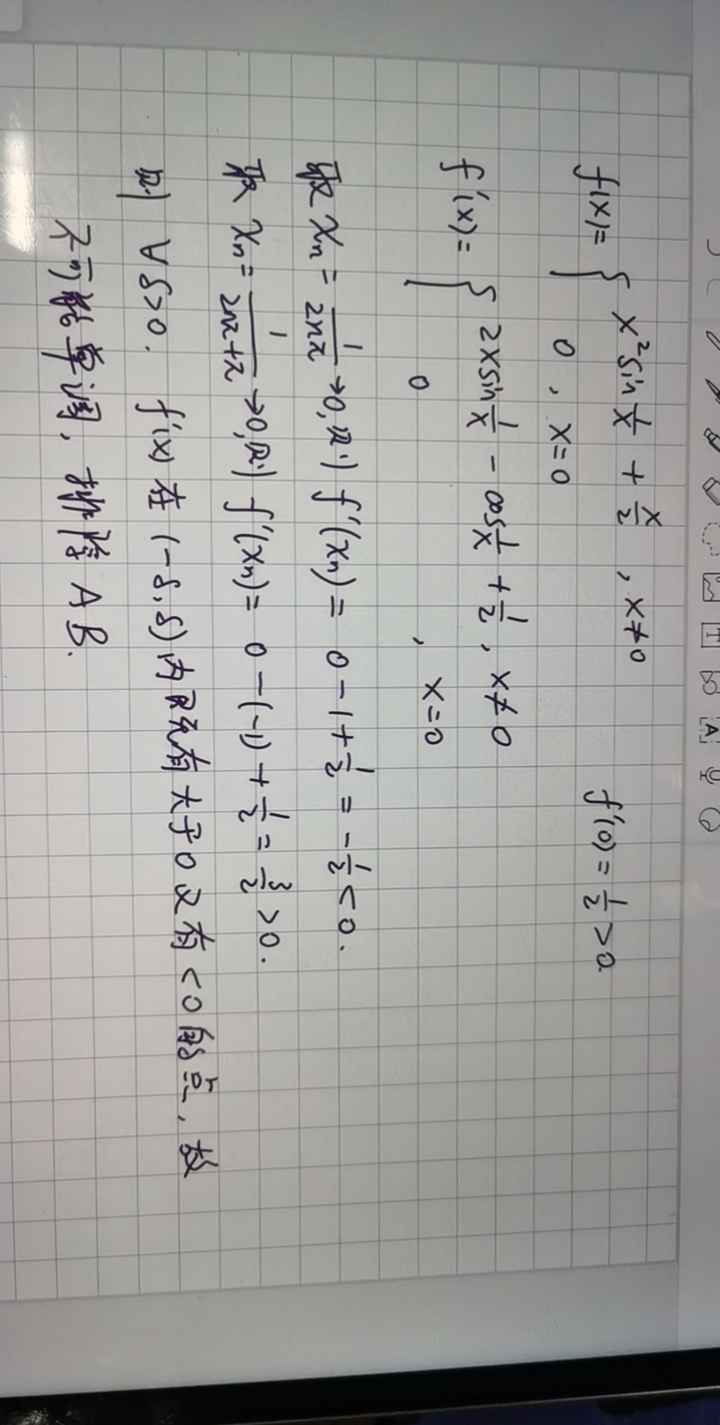 f(x)= { x² sin 1/x + x/2 , x≠0
0 , x=0
f'(0) = 1/2 > 0.
f'(x)= { 2x sin 1/x - cos 1/x + 1/2 , x≠0
0 , x=0
取 xₙ = 1/2nπ →0, 则 f'(xₙ) = 0 - 1 + 1/2 = - 1/2 < 0.
取 xₙ = 1/2nπ+π →0, 则 f'(xₙ) = 0 - (-1) + 1/2 = 3/2 > 0.
则 ∀δ>0. f'(x) 在 (-δ,δ) 内既有大于0又有<0的点, 故
不可能单调, 排除 AB.